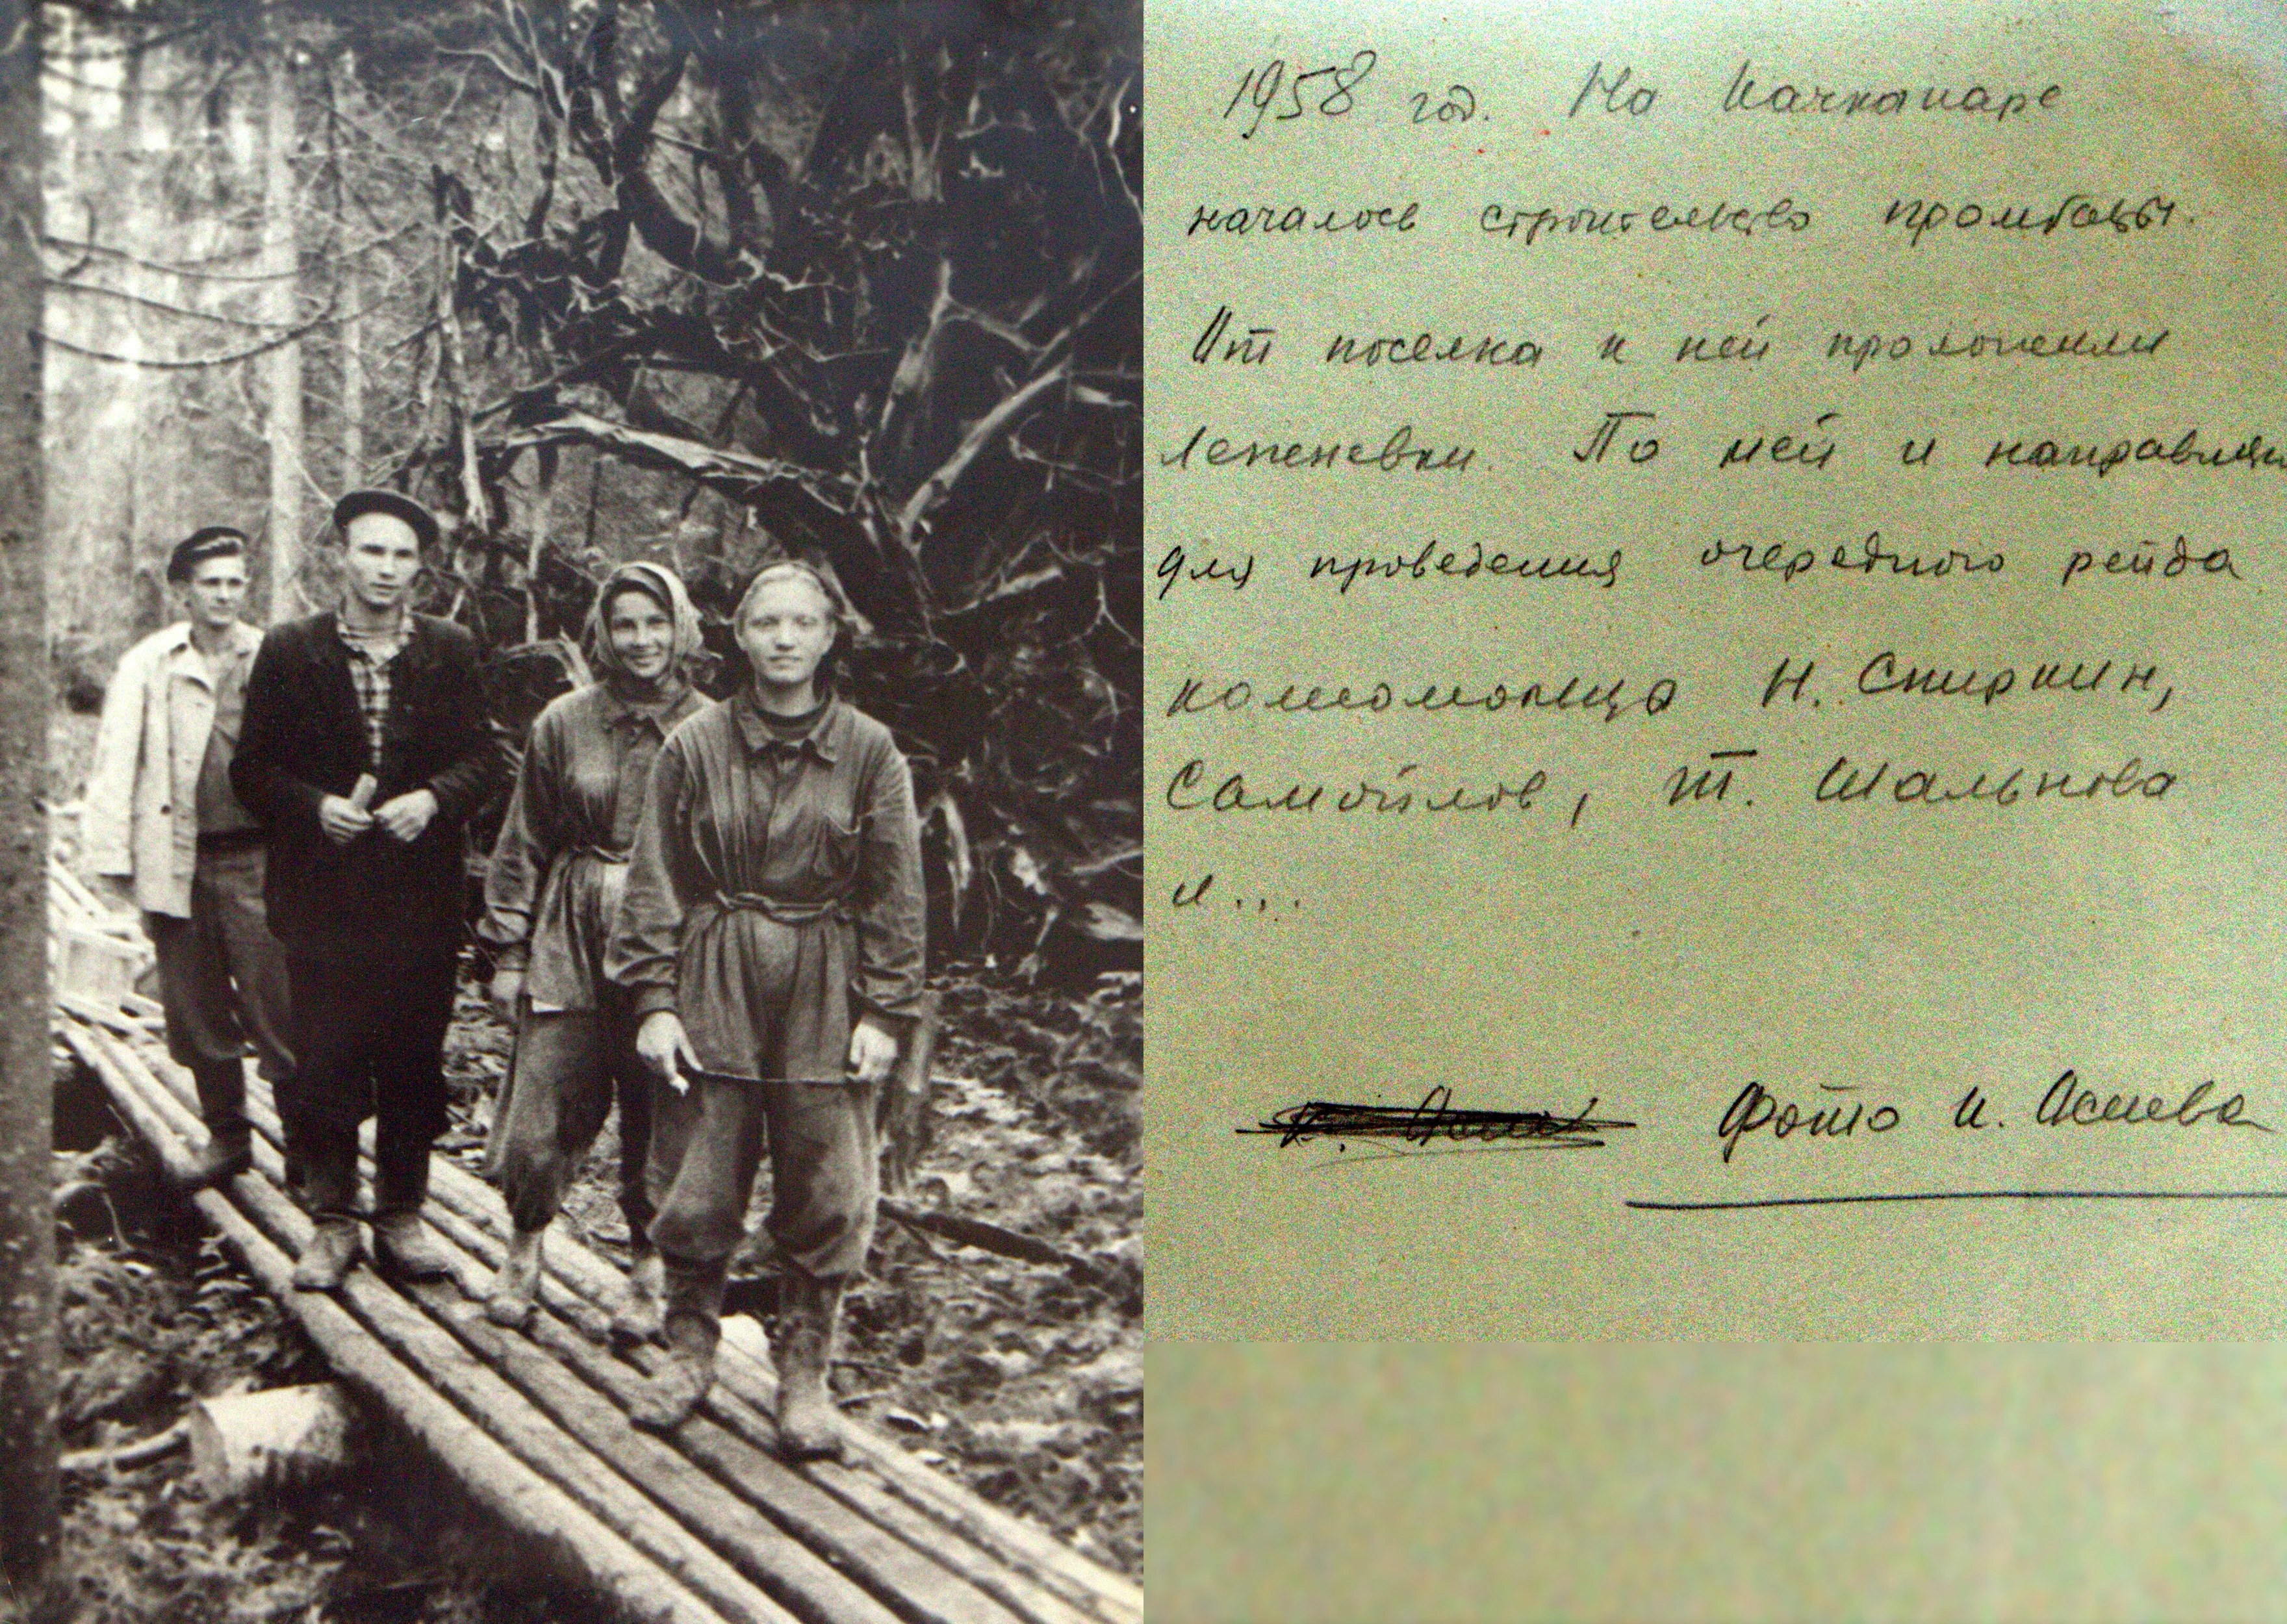 1958 год. На Качканаре
началось строительство промбазы.
От поселка к ней проложили
лежневки. По ней и направляли
для проведения очередного рейда
комсомольцы Н. Спиркин,
Самойлов, Т. Шальнова
и...
Фото И. Асиева